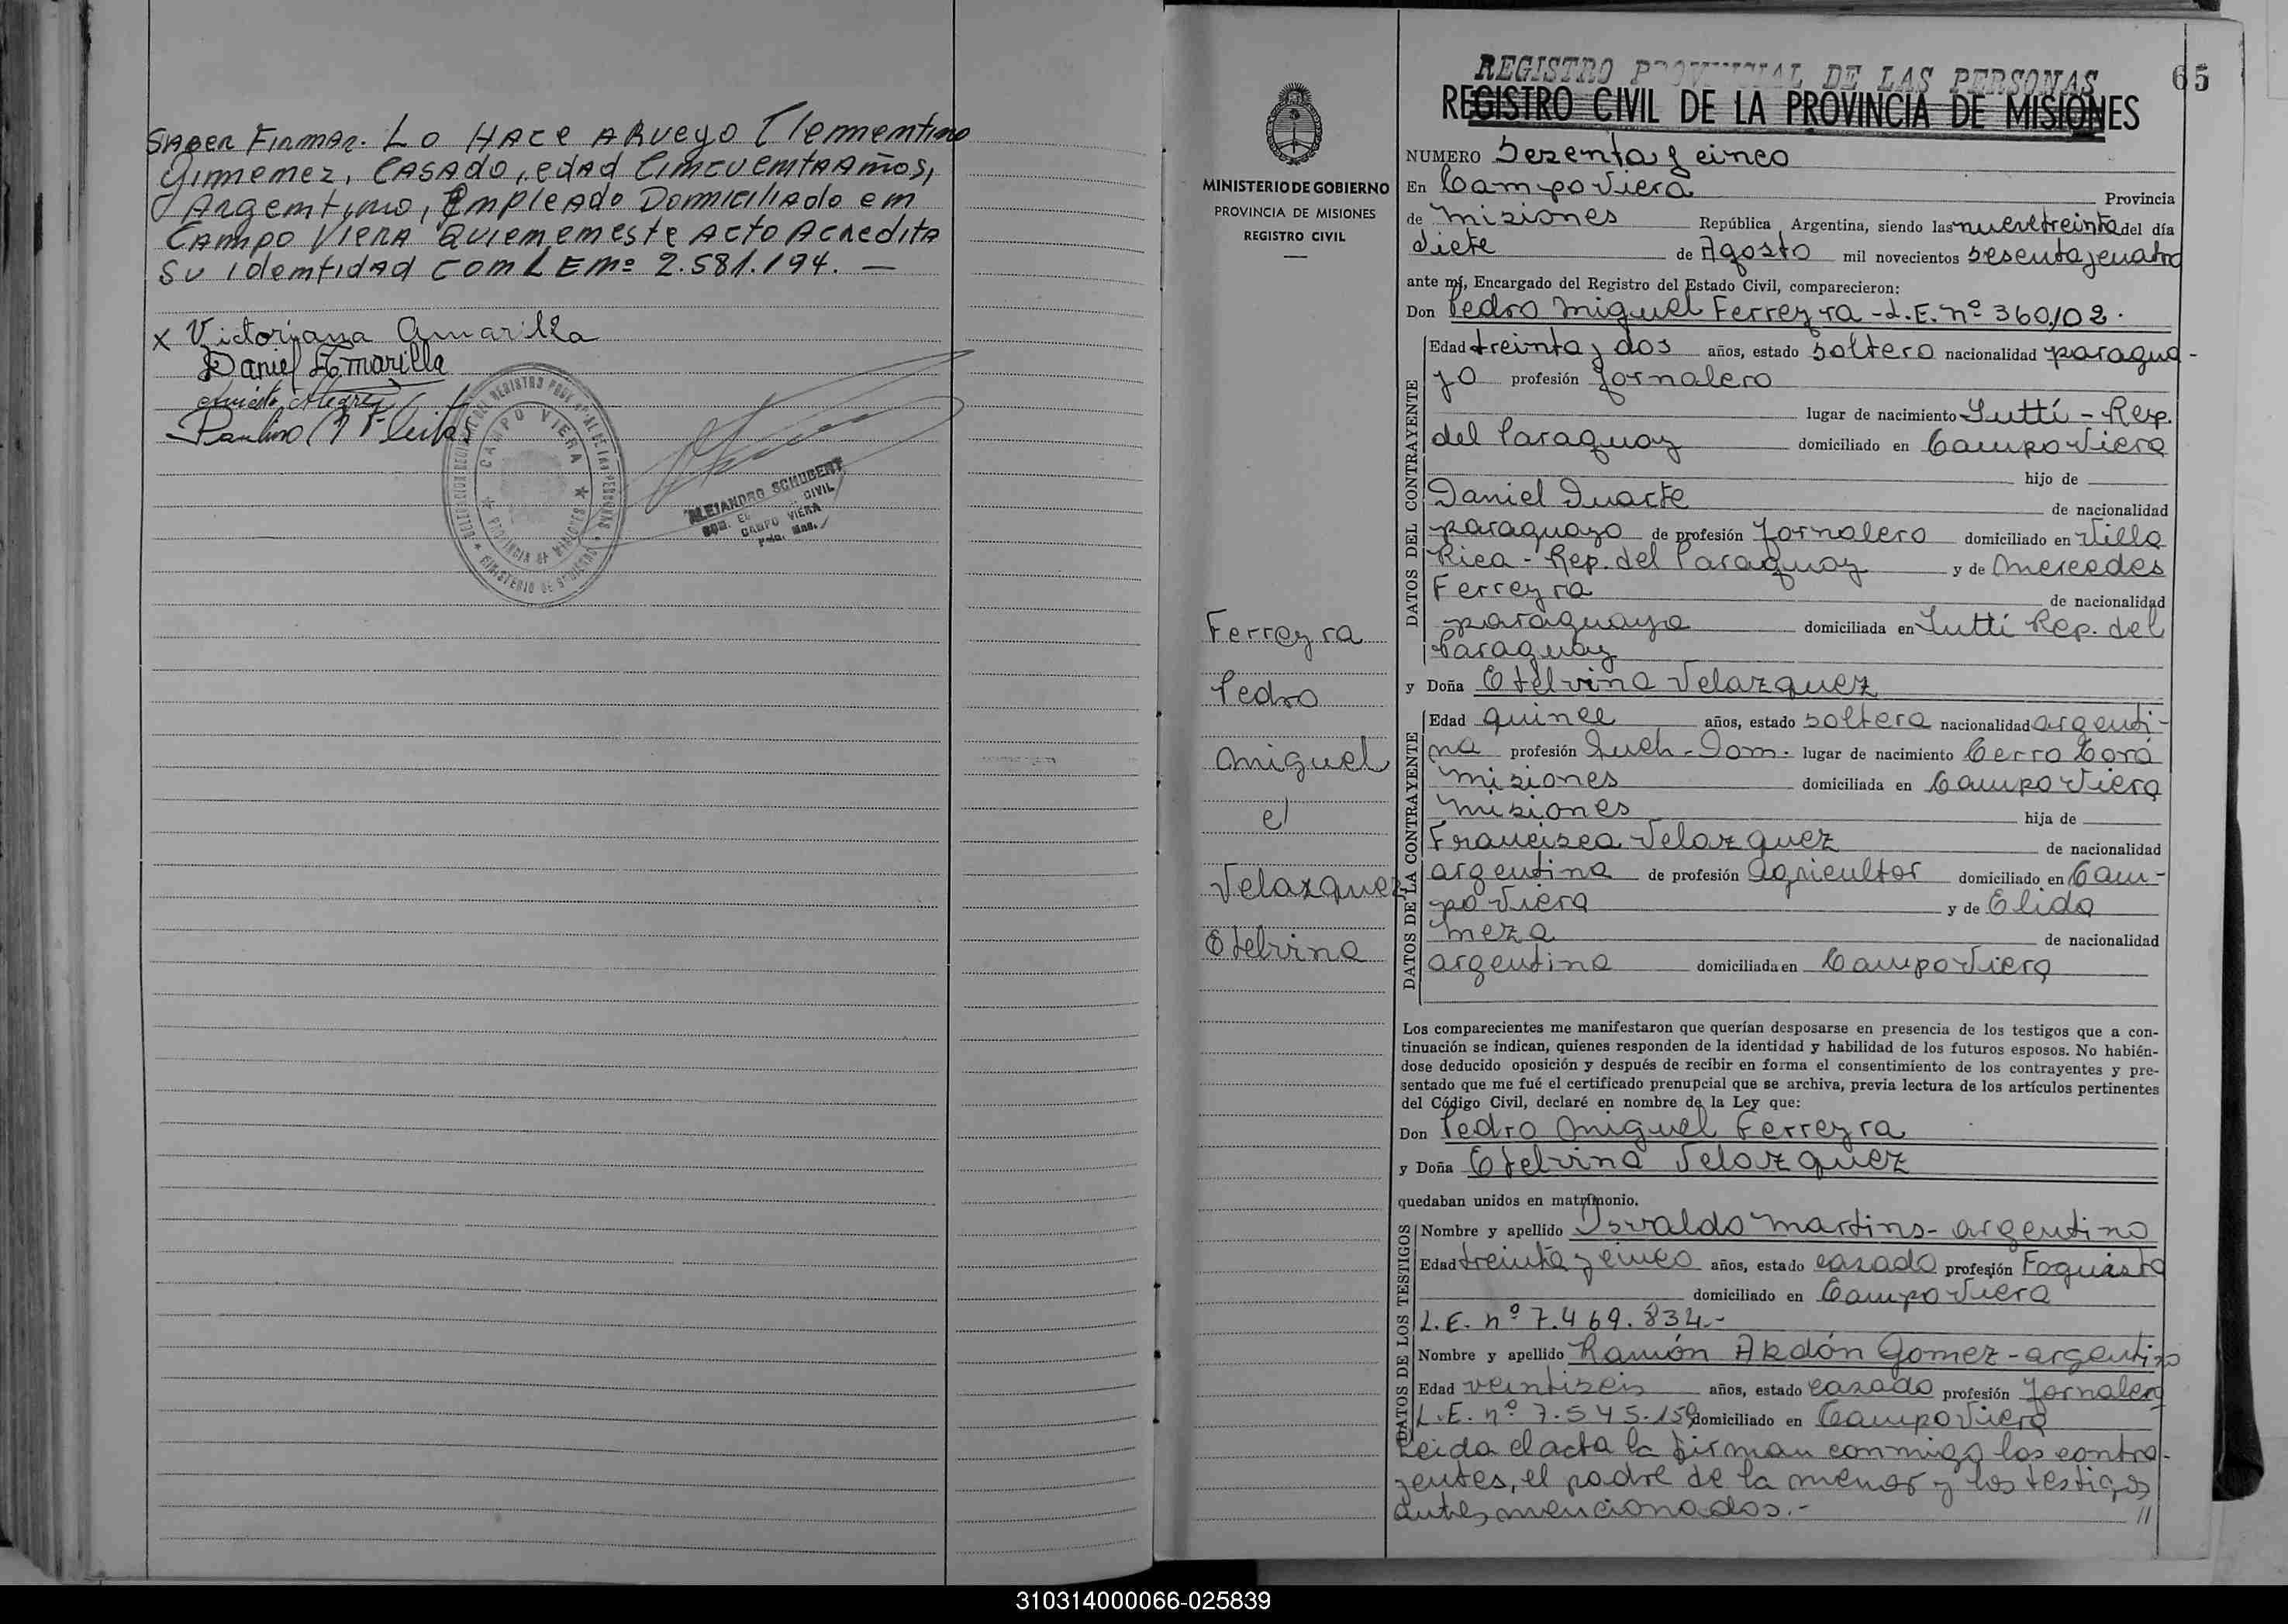 SABER FIRMAR. LO HACE ARUEGO Clementino
Gimenez, CASADO, edAd CimcuemtAAños,
Argemtimo, EmpleAdo DomiciliAdo em
CAmpo VierA QuiemmemestE Acto AcreditA
Su IdemtidAd com L E mº 2.581.194. —
x Victoriana Amarilla
Daniel Amarilla
Aniceto Alegre
Paulino Fleitas
DELEGACION REGISTRO PROVINCIAL DE LAS PERSONAS
CAMPO VIERA
PROVINCIA DE MISIONES
MINISTERIO DE GOBIERNO
ALEJANDRO SCHUBERT
CIVIL
CAMPO VIERA
Pcia. Mns.
65
REGISTRO PROVINCIAL DE LAS PERSONAS
REGISTRO CIVIL DE LA PROVINCIA DE MISIONES
MINISTERIO DE GOBIERNO
PROVINCIA DE MISIONES
REGISTRO CIVIL
Ferreyra
Pedro
Miguel
e/
Velazquez
Etelvina
NUMERO Sesenta y cinco
En Campo Viera Provincia
de Misiones República Argentina, siendo las nueve treinta del día
siete de Agosto mil novecientos sesenta y cuatro
ante mí, Encargado del Registro del Estado Civil, comparecieron:
Don Pedro Miguel Ferreyra - L.E. nº 360.102.
DATOS DEL CONTRAYENTE
Edad treinta y dos años, estado soltero nacionalidad paragua-
yo profesión Jornalero
lugar de nacimiento Iutti - Rep.
del Paraguay domiciliado en Campo Viera
hijo de
Daniel Duarte de nacionalidad
paraguayo de profesión Jornalero domiciliado en Villa
Rica - Rep. del Paraguay y de Mercedes
Ferreyra de nacionalidad
paraguaya domiciliada en Iutti Rep. del
Paraguay
y Doña Etelvina Velazquez
DATOS DE LA CONTRAYENTE
Edad quince años, estado soltera nacionalidad argenti-
na profesión Queh-Dom. lugar de nacimiento Cerro Corá
Misiones domiciliada en Campo Viera
Misiones hija de
Francisco Velazquez de nacionalidad
argentina de profesión Agricultor domiciliado en Cam-
po Viera y de Elida
Meza de nacionalidad
argentina domiciliada en Campo Viera
Los comparecientes me manifestaron que querían desposarse en presencia de los testigos que a con-
tinuación se indican, quienes responden de la identidad y habilidad de los futuros esposos. No habién-
dose deducido oposición y después de recibir en forma el consentimiento de los contrayentes y pre-
sentado que me fué el certificado prenupcial que se archiva, previa lectura de los artículos pertinentes
del Código Civil, declaré en nombre de la Ley que:
Don Pedro Miguel Ferreyra
y Doña Etelvina Velazquez
quedaban unidos en matrimonio.
DATOS DE LOS TESTIGOS
Nombre y apellido Osvaldo Martins - argentino
Edad treinta y cinco años, estado casado profesión Foguista
domiciliado en Campo Viera
L.E. nº 7.469.834.-
Nombre y apellido Ramón Abdón Gomez - argentino
Edad veintiseis años, estado casado profesión Jornalero
L.E. nº 7.545.159 domiciliado en Campo Viera
Leida el acta la firman conmigo los contra-
yentes, el padre de la menor y los testigos
antes mencionados.- //
310314000066-025839